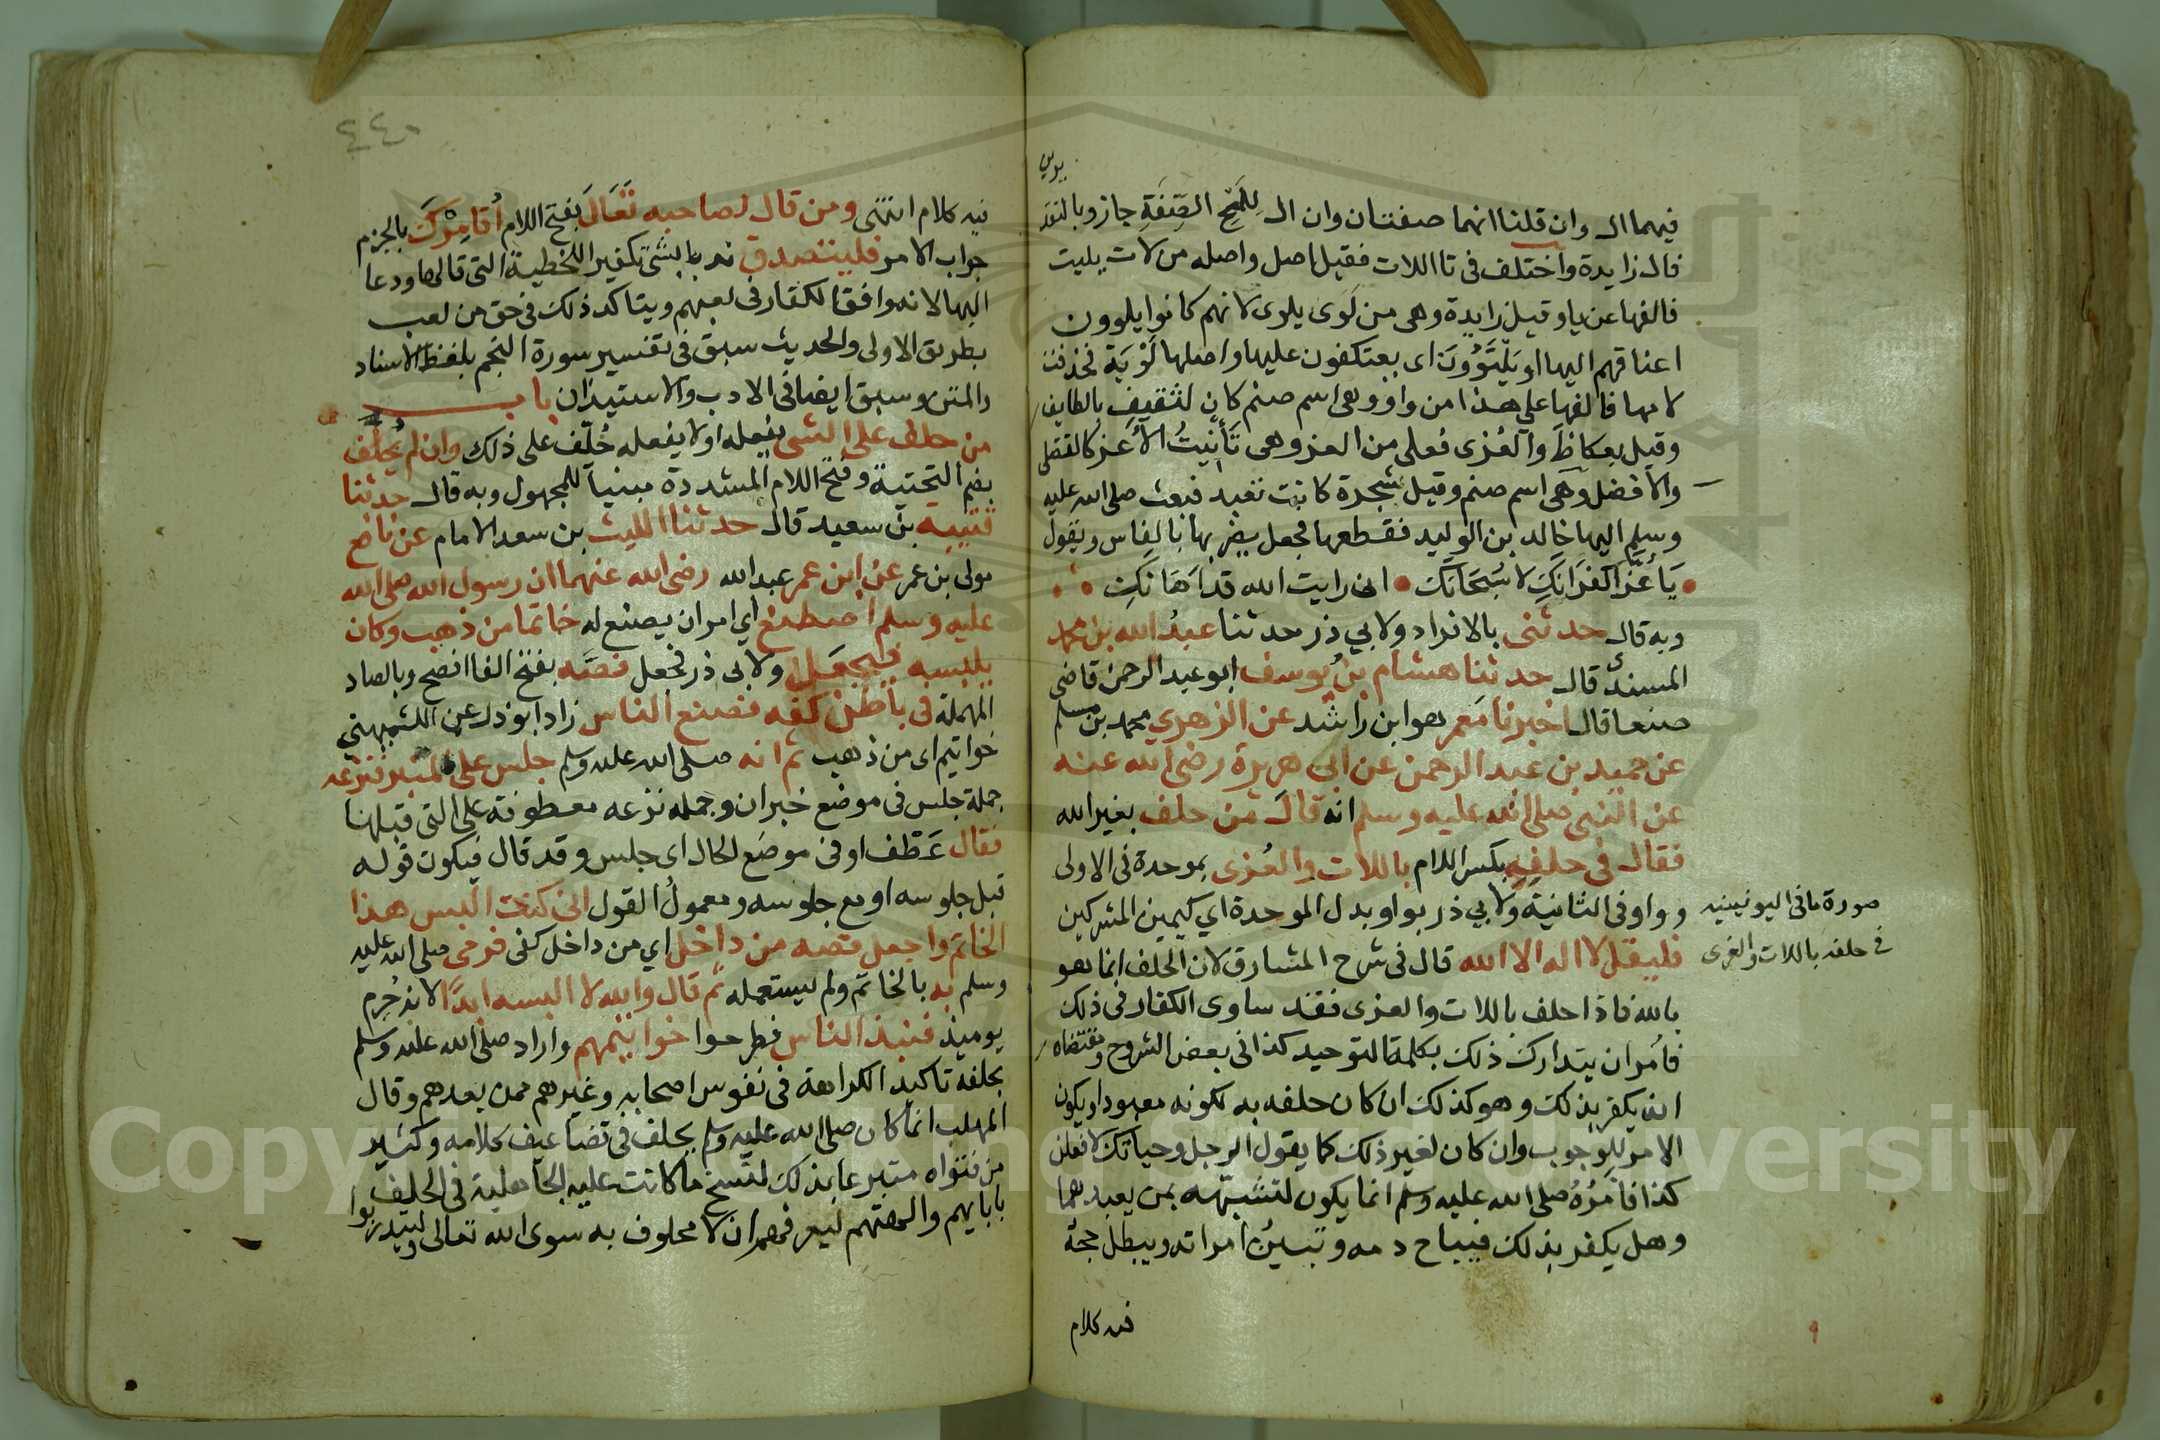 فيهما ال وان قلنا انهما صفتان وان ال لِلَمْحِ الصِّفَةِ جاز وبالتقد
فال زايدة واختلف فى تا اللات فقيل اصل واصله من لات يليت
فالفها عن يا وقيل زايدة وهى من لَوى يلوى لانهم كانوا يلوون
اعناقهم اليها او يَلْتَوُونَ اى يعتكفون عليها واصلها لَوْيَة فحذفت
لامها فالفها على هذا من واو وهى اسم صنم كان لثقيف بالطايف
وقيل بعكاظ والعُزى فُعلى من العز وهى تَأنِيثُ الاَعز كالفضلى
والافضل وهى اسم صنم وقيل شجرة كانت تعبد فبعث صلى الله عليه
وسلم اليها خالد بن الوليد فقطعها فجعل يضربها بالفاس ويقول
يَا عُزَّ اكفرَانَكِ لا سُبْحَانَكِ انى رايت الله قد اَهَانَكِ
وبه قال حدثنى بالافراد ولابي ذر حدثنا عبدُ الله بن محمد
المسندىّ قال حدثنا هشام بن يُوسف ابو عبد الرحمن قاضى
صنعا قال اخبرنا مَعمر هو ابن راشد عن الزهري محمد بن مسلم
عن حميد بن عبد الرحمن عن ابى هريرة رضى الله عنه
عن النبى صلى الله عليه وسلم انه قال من حلف بغير الله
فقال فى حلِفِهِ بكسر اللام باللات والعُزى بموحدة فى الاولى
وواو فى الثانية ولابي ذر بواو بدل الموحدة اي كيمين المشركين
صورة ما فى اليونينيه
فى حلفه باللات والعزى
فليقل لا اله الا الله قال فى شرح المشارق لان الحلف انما هو
بالله فاذا حلف باللات والعزى فقد ساوى الكفار فى ذلك
فاُمر ان يتدارك ذلك بكلمة التوحيد كذا فى بعض الشروح ومقتضاه
انه يكفر بذلك وهو كذلك ان كان حلفه به لكونه معبودا ويكون
الامر للوجوب وان كان لغير ذلك كما يقول الرجل وحياتك لافعلن
كذا فاَمْرُهُ صلى الله عليه وسلم انما يكون لتشبّهه بمن يعبدهما
وهل يكفر بذلك فيباح دمه وتبيُن امراته ويبطل حجه
فيه كلام
٤٤٠
فيه كلام انتهى ومن قال لصاحبه تَعَالَ بفتح اللام أُقامِرْكَ بالجزم
جواب الامر فليتصدق ندبا بشى تكفيرا للخطية التى قالها ودعا
اليها لانه وافق الكفار فى لعبهم ويتاكد ذلك فى حق من لعب
بطريق الاولى والحديث سبق فى تفسير سورة النجم بلفظ الاسناد
والمتن وسبق ايضا فى الادب والاستيذان باب
من حلف على الشى يفعله او لا يفعله حُلّف على ذلك وان لم يُحلَّف
بضم التحتية وفتح اللام المشددة مبنيا للمجهول وبه قال حدثنا
قتيبة بن سعيد قال حدثنا الليث بن سعد الامام عن نافع
مولى بن عمر عن ابن عمر عبد الله رضى الله عنهما ان رسول الله صلى الله
عليه وسلم اصطنع اي امر ان يصنع له خاتما من ذهب وكان
يلبسه فيجعل ولابى ذر فجعل فصَّه بفتح الفا افصح وبالصاد
المهملة فى باطن كفه فصنع الناس زاد ابو ذر عن الكشميهني
خواتيم اى من ذهب ثم انه صلى الله عليه وسلم جلس على المنبر فنزعه
جملة جلس فى موضع خبر ان وجمله نزعه معطوفة على التى قبلها
فقال عَطف او فى موضَع الحال اى جلس وقد قال فيكون قوله
قبل جلوسه او مع جلوسه ومعمولُ القول انى كنت البس هذا
الخاتم واجعل فصه من داخل اي من داخل كفى فرمى صلى الله عليه
وسلم به بالخاتم ولم يستعمله ثم قال والله لا البسه ابدًا لانه حُرِم
يوميذ فنبذ الناس فطرحوا خواتيمهم واراد صلى الله عليه وسلم
بحلفه تاكيد الكراهة فى نفوس اصحابه وغيرهم ممن بعدهم وقال
المهلب انما كان صلى الله عليه وسلم يحلف فى تضاعيف كلامه وكثير
من فتواه متبرعا بذلك لنسخ ما كانت عليه الجاهلية فى الحلف
بابايهم والهتهم ليعرفهم ان لا محلوف به سوى الله تعالى وليتدربوا
Copy King Saud University